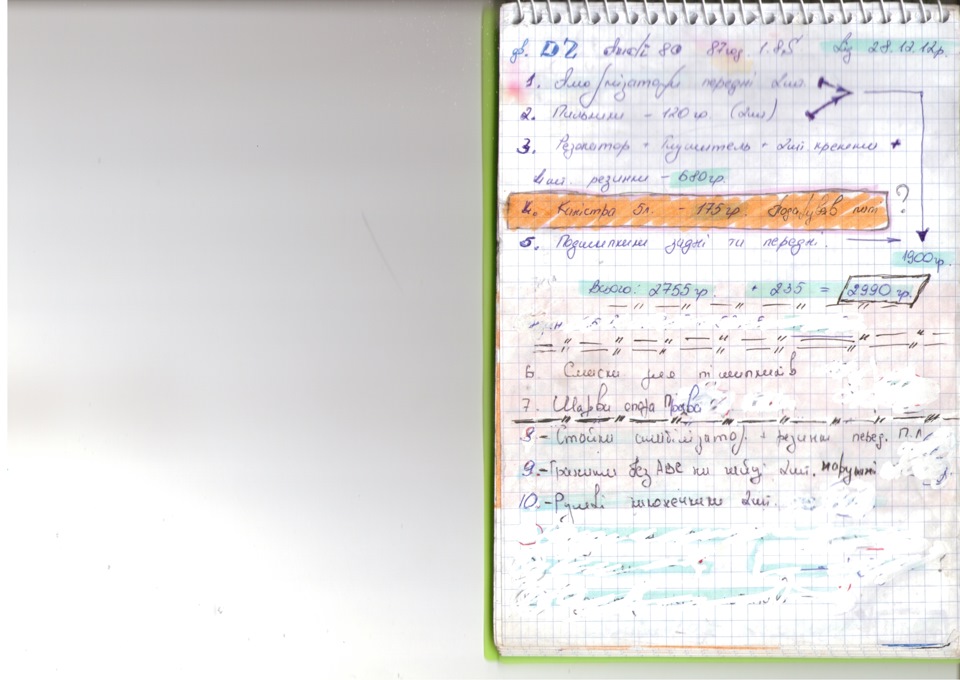 дв. DZ Audi 80 87год. 1.8S Від 28.12.12р.
1. Амортізатори передні 2шт.
2. Пильники - 120гр. (2шт)
3. Резонатор + Глушитель + 2шт кремени +
4шт. резинки - 680гр.
4. Каністра 5л. - 175гр. ?
5. Подшипники задні та передні.
1900гр.
Всього: 2755гр. + 235 = 2990 гр.
6. Смазки для підшипників
7. Шарова опора Права
8 - Стойки стабілізатор. + резинки перед. п.л.
9. - Гранати без АВС на шліці 2шт. наружні
10. - Рулеві наконечники 2шт.